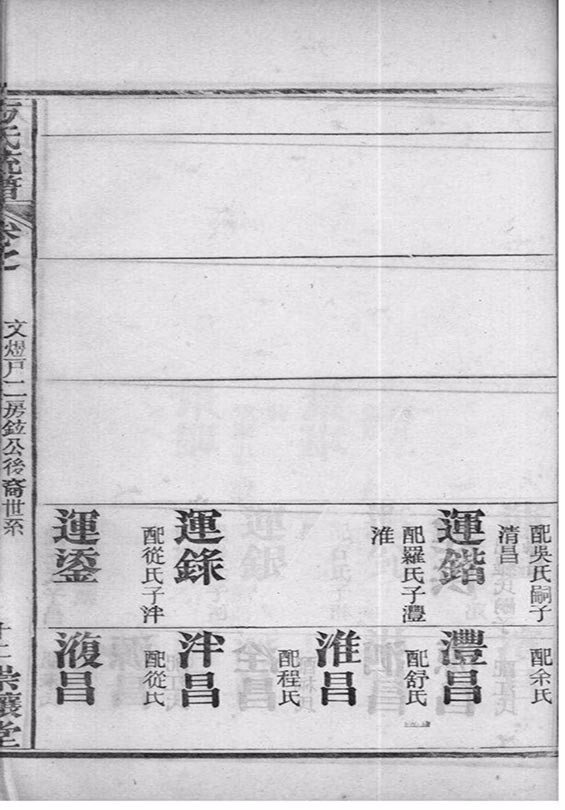 配吳氏嗣子
清昌
運鍇
配羅氏子灃
淮
運錄
配從氏子泮
運鍌
配余氏
灃昌
配舒氏
淮昌
配程氏
泮昌
配從氏
澓昌
氏統譜
卷之
文煜戶二房鉉公後裔世系
十二
崇讓堂